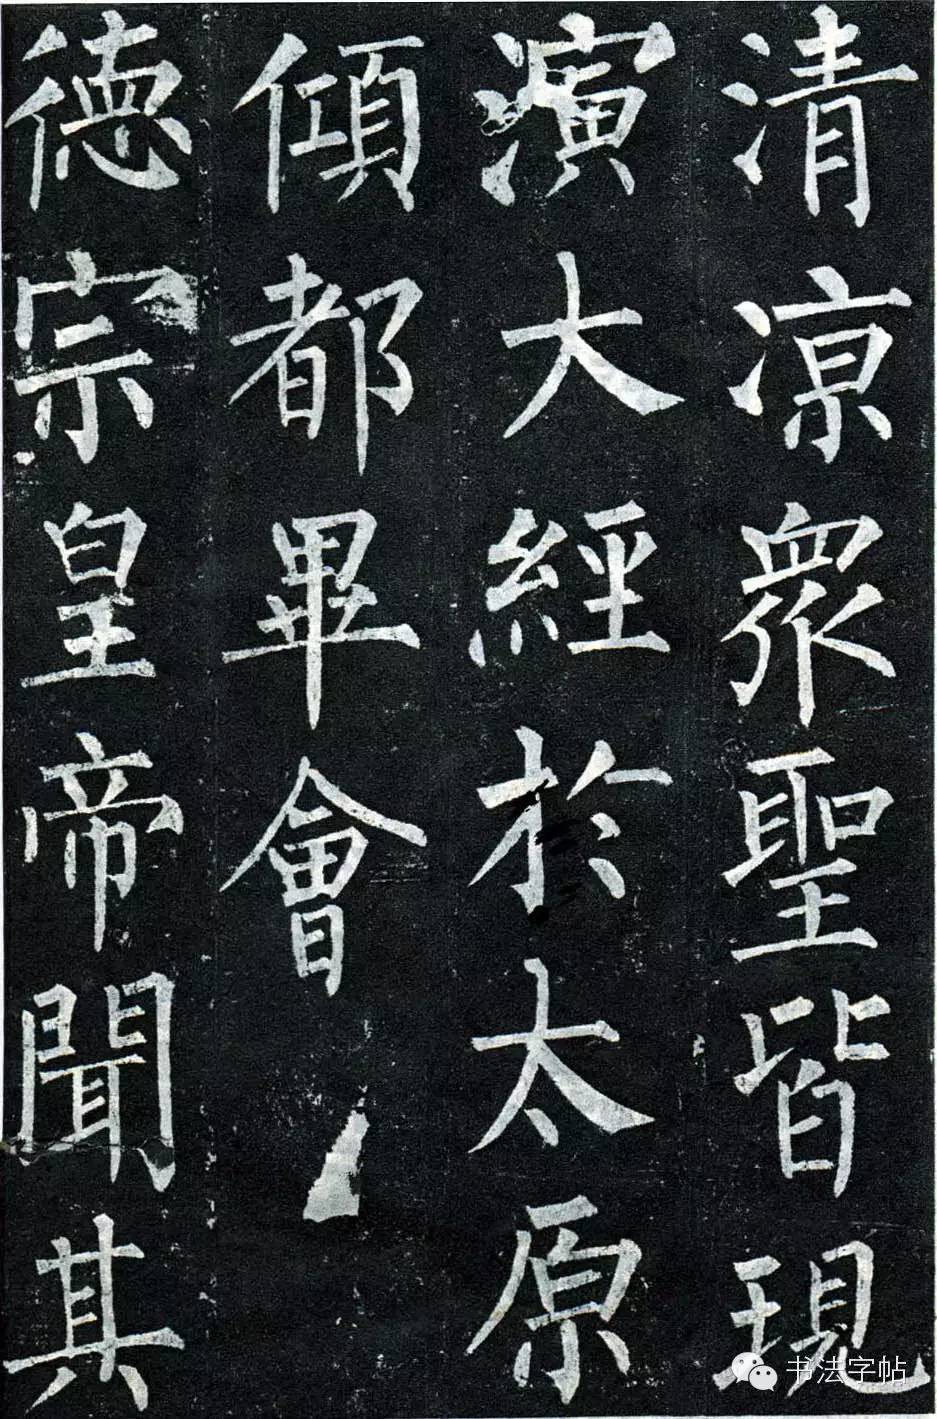 清涼衆聖皆現
演大經於太原
傾都畢會
德宗皇帝聞其
书法字帖